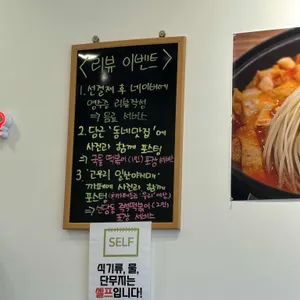 <리뷰 이벤트>
1. 선결제 후 네이버에
영수증 리뷰작성
⇒ 음료 서비스
2. 당근 '동네맛집'에
사진과 함께 포스팅
⇒ 국물 떡볶이 (1인) 포장
3.
카페에 사진과 함께
포스팅
⇒ 신당동 즉석떡볶이 (2인)
포장 서비스
SELF
식기류, 물,
단무지는
셀프입니다!